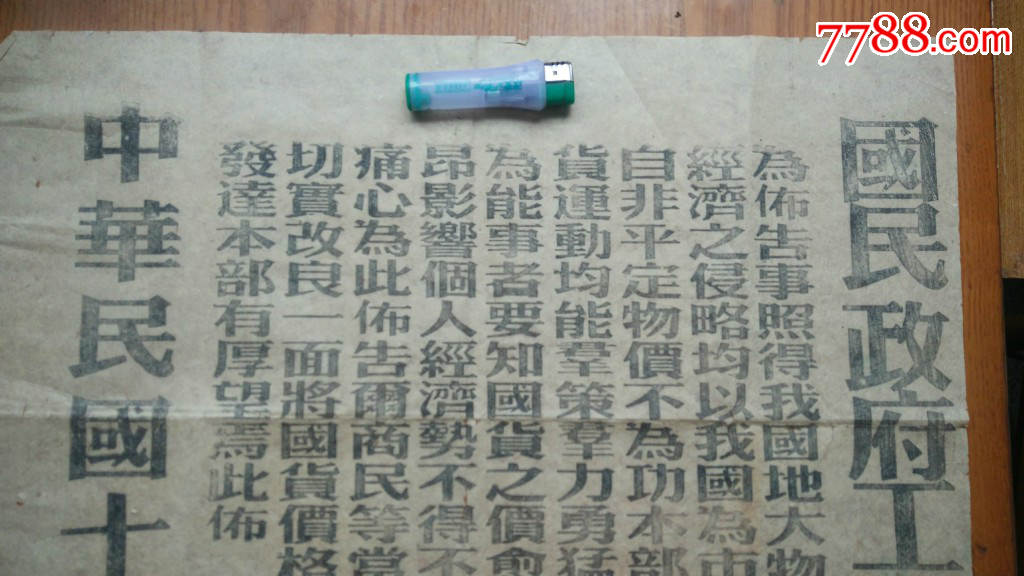 7788.com
國民政府工
為佈告事照得我國地大物
經濟之侵略均以我國為市
自非平定物價不為功本部
貨運動均能羣策羣力勇猛
為能事者要知國貨之價愈
昂影響個人經濟勢不得不
痛心為此佈告爾商民等當
切實改良一面將國貨價格
發達本部有厚望焉此佈
中華民國十